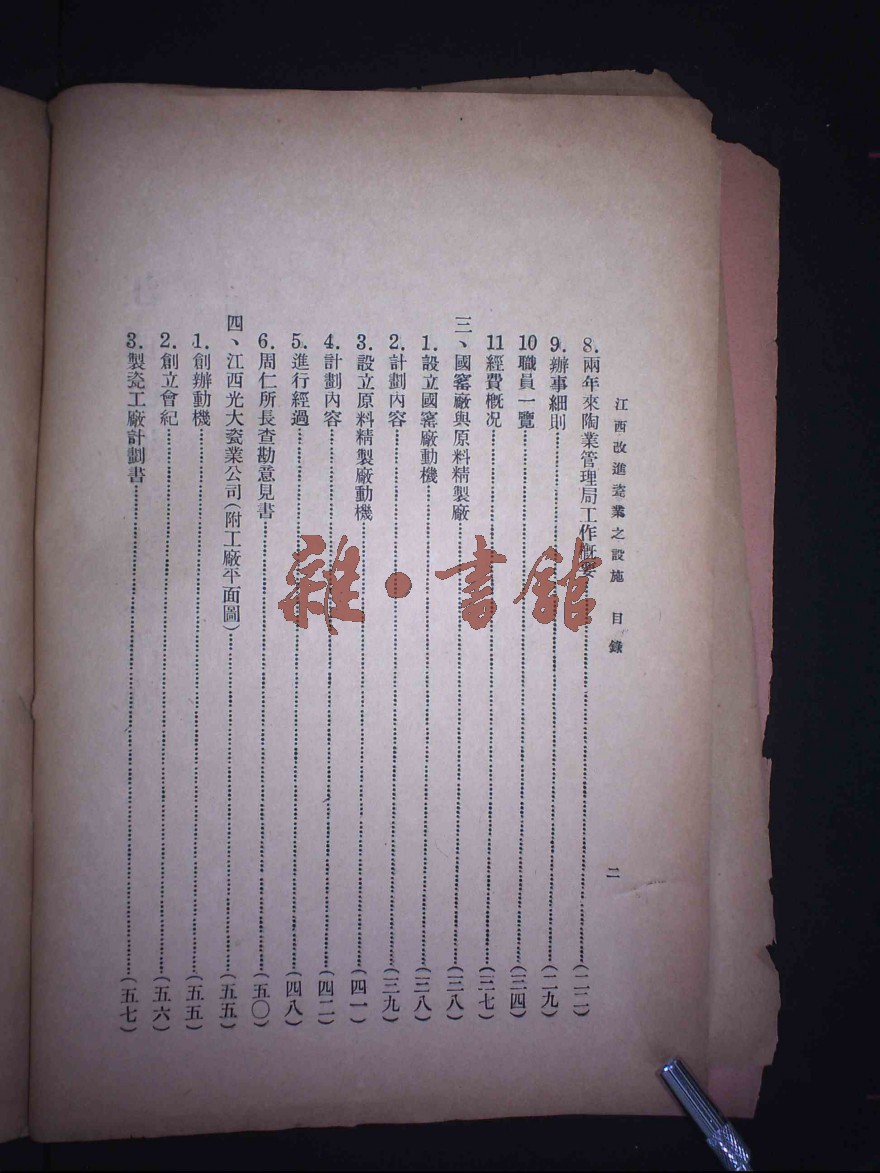 江西改進瓷業之設施 目錄 二
8.兩年來陶業管理局工作概要……(二二)
9.辦事細則……(二九)
10職員一覽……(三四)
11經費概况……(三七)
三、國窰廠與原料精製廠……(三八)
1.設立國窰廠動機……(三八)
2.計劃內容……(三九)
3.設立原料精製廠動機……(四一)
4.計劃內容……(四二)
5.進行經過……(四八)
6.周仁所長查勘意見書……(五〇)
四、江西光大瓷業公司(附工廠平面圖)……(五五)
1.創辦動機……(五五)
2.創立會紀……(五六)
3.製瓷工廠計劃書……(五七)
雜·書館